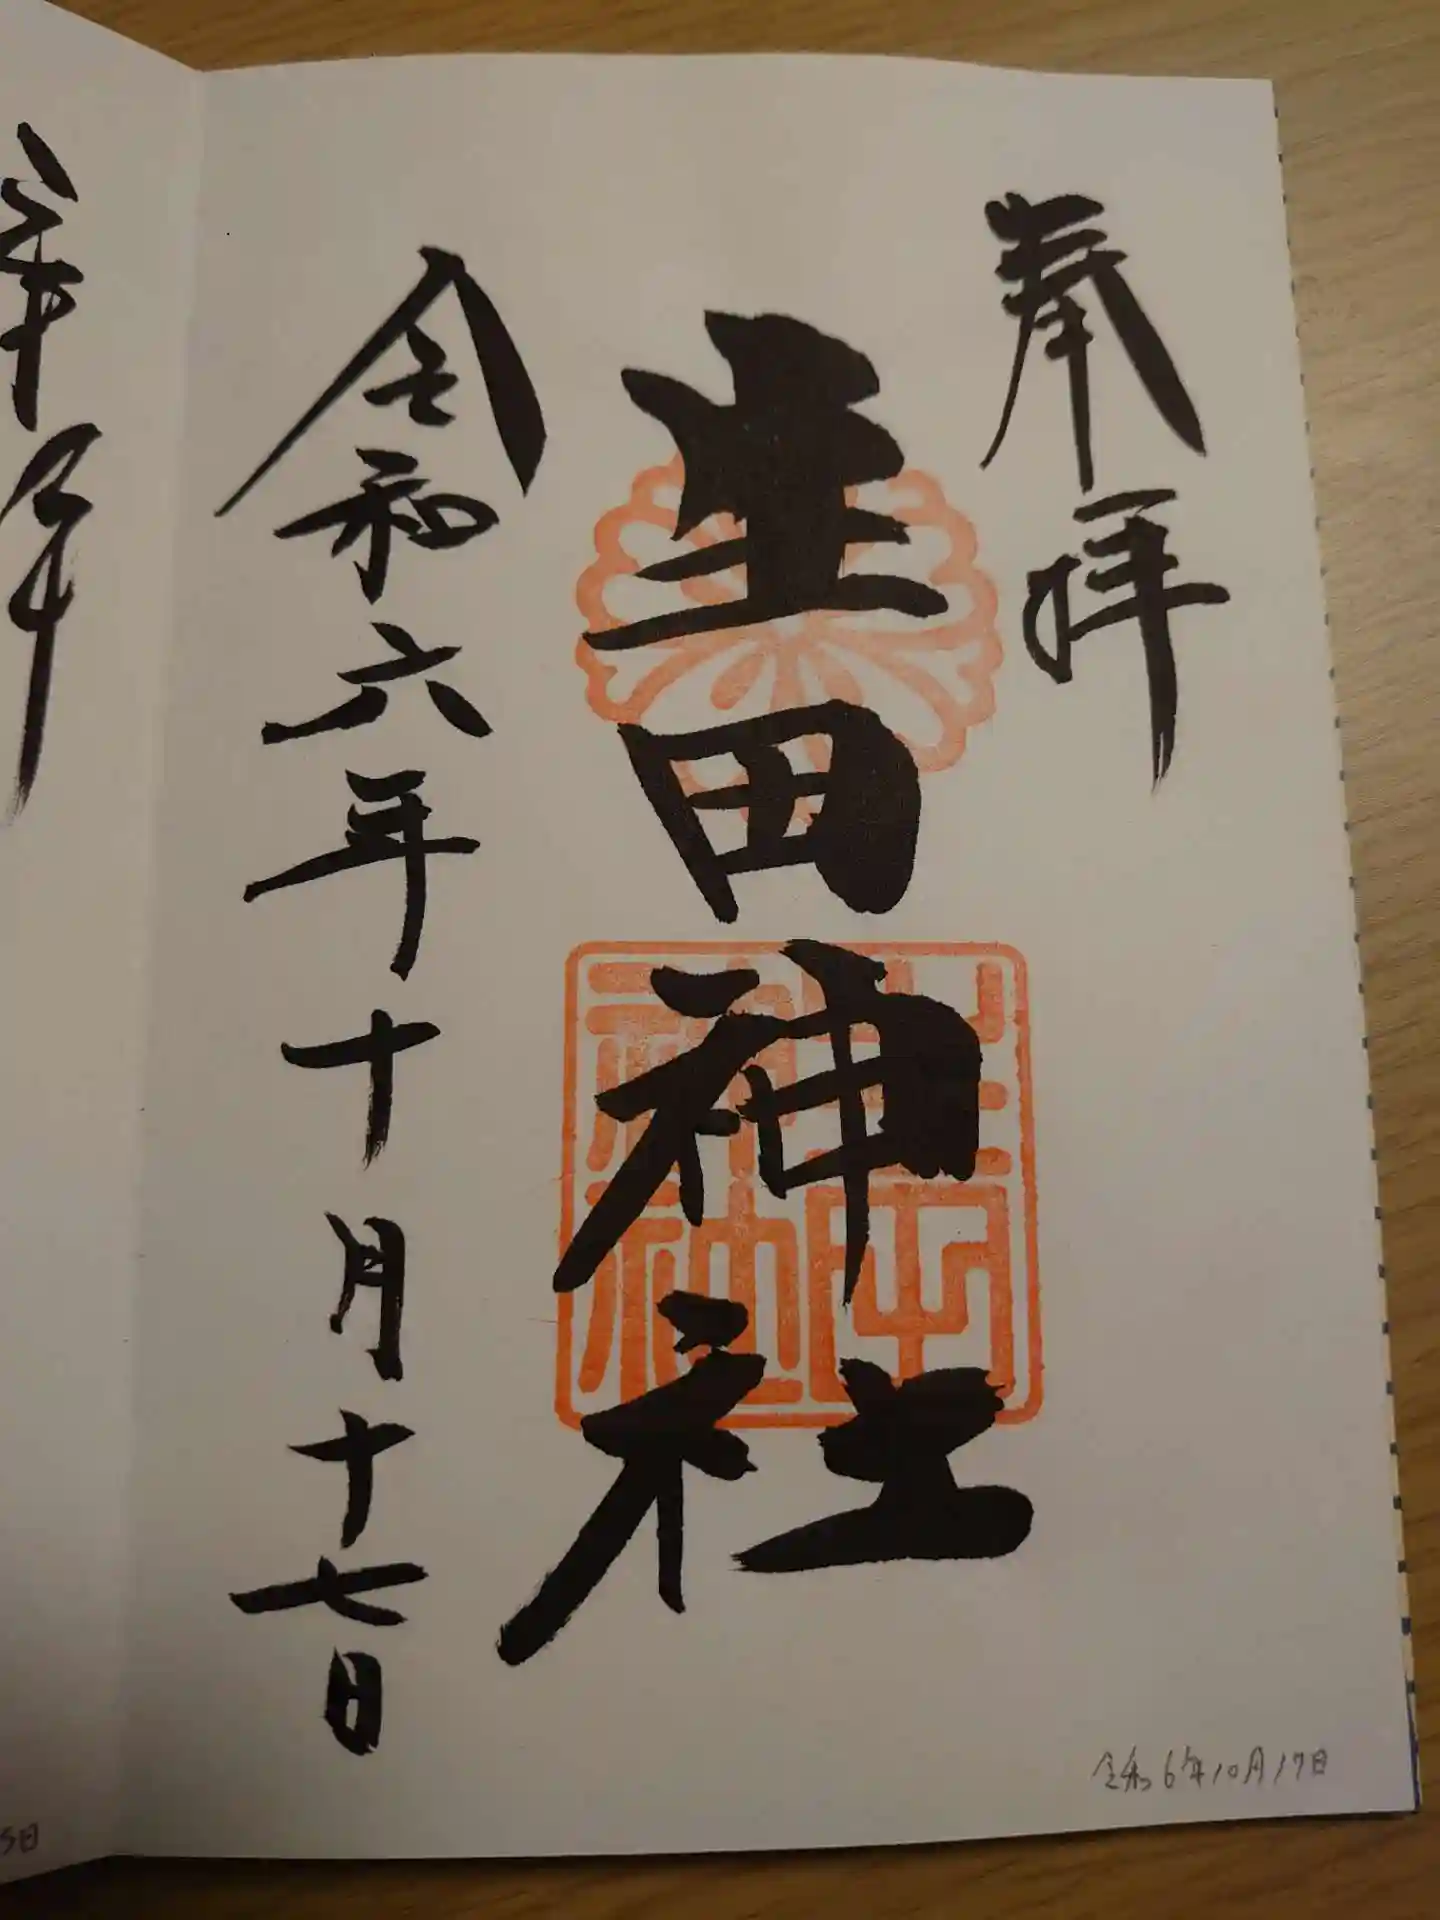 奉拝
生田神社
生田神社
令和六年十月十七日
令和6年10月17日
5日